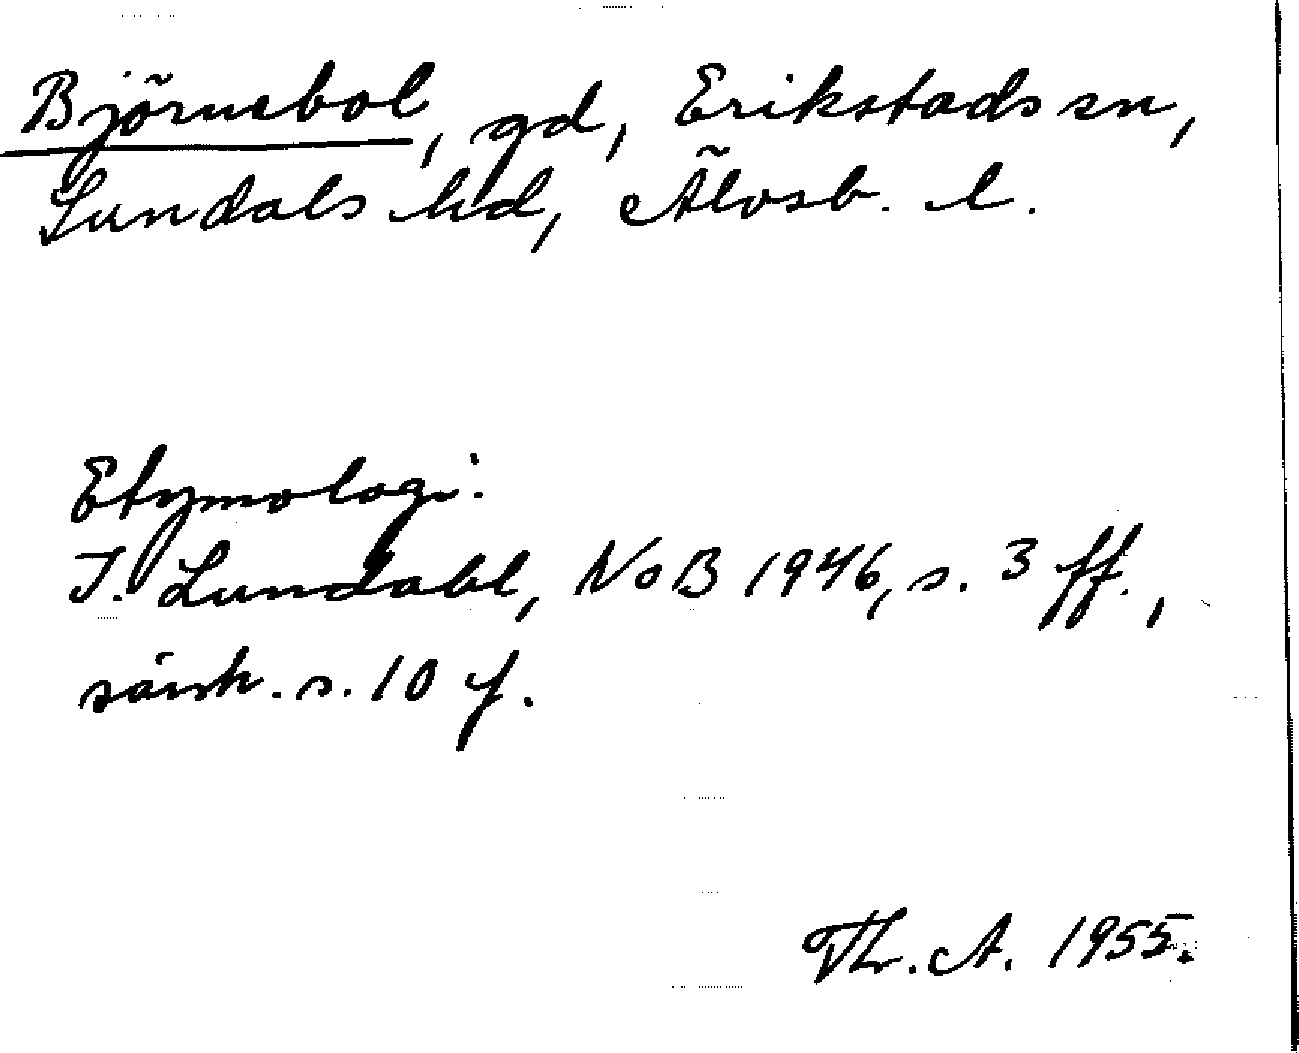 Björnebol, gd, Erikstads sn,
Sundals hd, Älvsb. l.
Etymologi:
I. Lundahl, NoB 1946, s. 3 ff.,
särsk. s. 10 f.
Th. A. 1955.